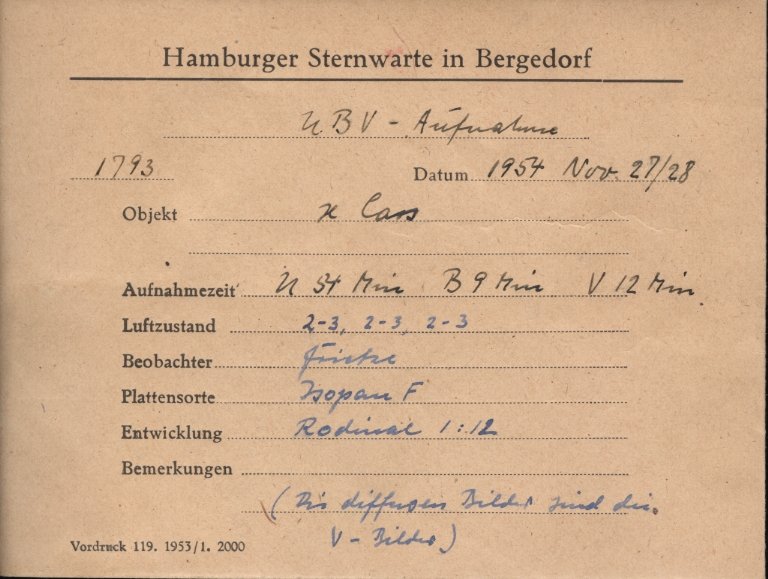 Hamburger Sternwarte in Bergedorf
UBV - Aufnahme
1793 Datum 1954 Nov. 27/28
Objekt ϰ Cass
Aufnahmezeit U 54 Min B 9 Min V 12 Min
Luftzustand 2-3, 2-3, 2-3
Beobachter
Plattensorte Isopan F
Entwicklung Rodinal 1:12
Bemerkungen
(Die diffusen Bilder sind die
V - Bilder)
Vordruck 119. 1953/1. 2000